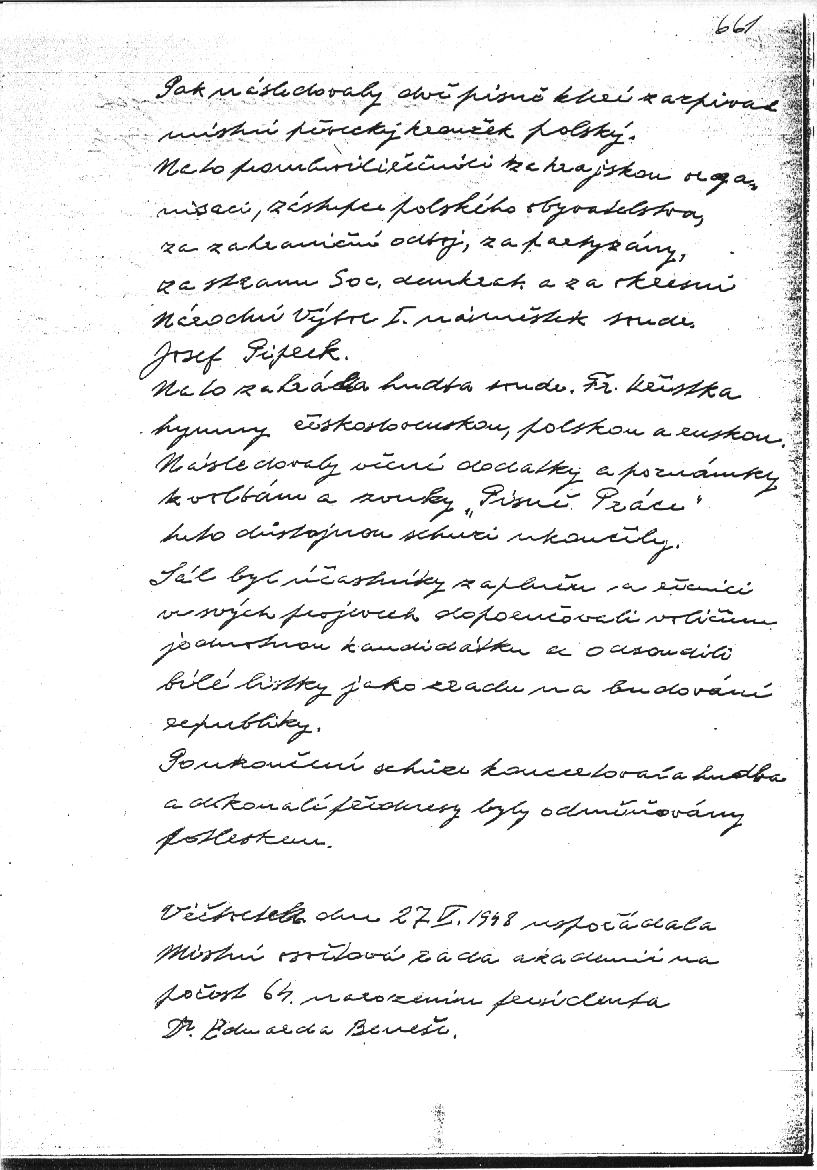 661
Pak následovaly dvě písně které zazpíval
místní pěvecký kroužek polský.
Na to promluvili řečníci za krajskou orga-
nisaci, zástupce polského obyvatelstva,
za zahraniční odboj, za partyzány,
za stranu Soc. demkrat. a za okresní
Národní Výbor I. náměstek soudr.
Josef Pipeck.
Na to zahrála hudba soudr. Fr. Křístka
hymny československou, polskou a ruskou.
Následovaly věcné dodatky a poznámky
k volbám a zvuky „Písně Práce"
tuto důstojnou schuzi ukončily.
Sál byl účastníky zaplněn a řečníci
ve svých projevech doporučovali voličům
jednotnou kandidátku a odsoudili
bílé lístky jako zradu na budování
republiky.
Po ukončení schůze koncertovala hudba
a dokonalé přednesy byly odměňovány
potleskem.
Večtvrtek dne 27 V. 1948 uspořádala
Místní osvětová rada akademii na
počest 64. narozenin presidenta
Dr. Eduarda Beneše.